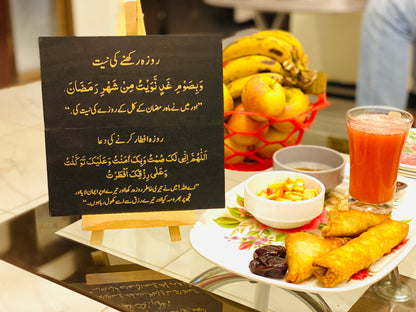 روزہ رکھنے کی نیت
وَبِصَوْمِ غَدٍ نَّوَيْتُ مِنْ شَهْرِ رَمَضَانَ۔
"اور میں نے ماہ رمضان کے کل کے روزے کی نیت کی۔"
روزہ افطار کرنے کی دعا
اَللّٰهُمَّ اِنِّى لَكَ صُمْتُ وَبِكَ اٰمَنْتُ وَعَلَيْكَ تَوَكَّلْتُ
وَعَلٰى رِزْقِكَ اَفْطَرْتُ
"اے اللہ! میں نے تیری خاطر روزہ رکھا اور تیرے اوپر ایمان لایا اور
تجھ پر بھروسہ کیا اور تیرے رزق سے اسے کھول رہا ہوں۔"